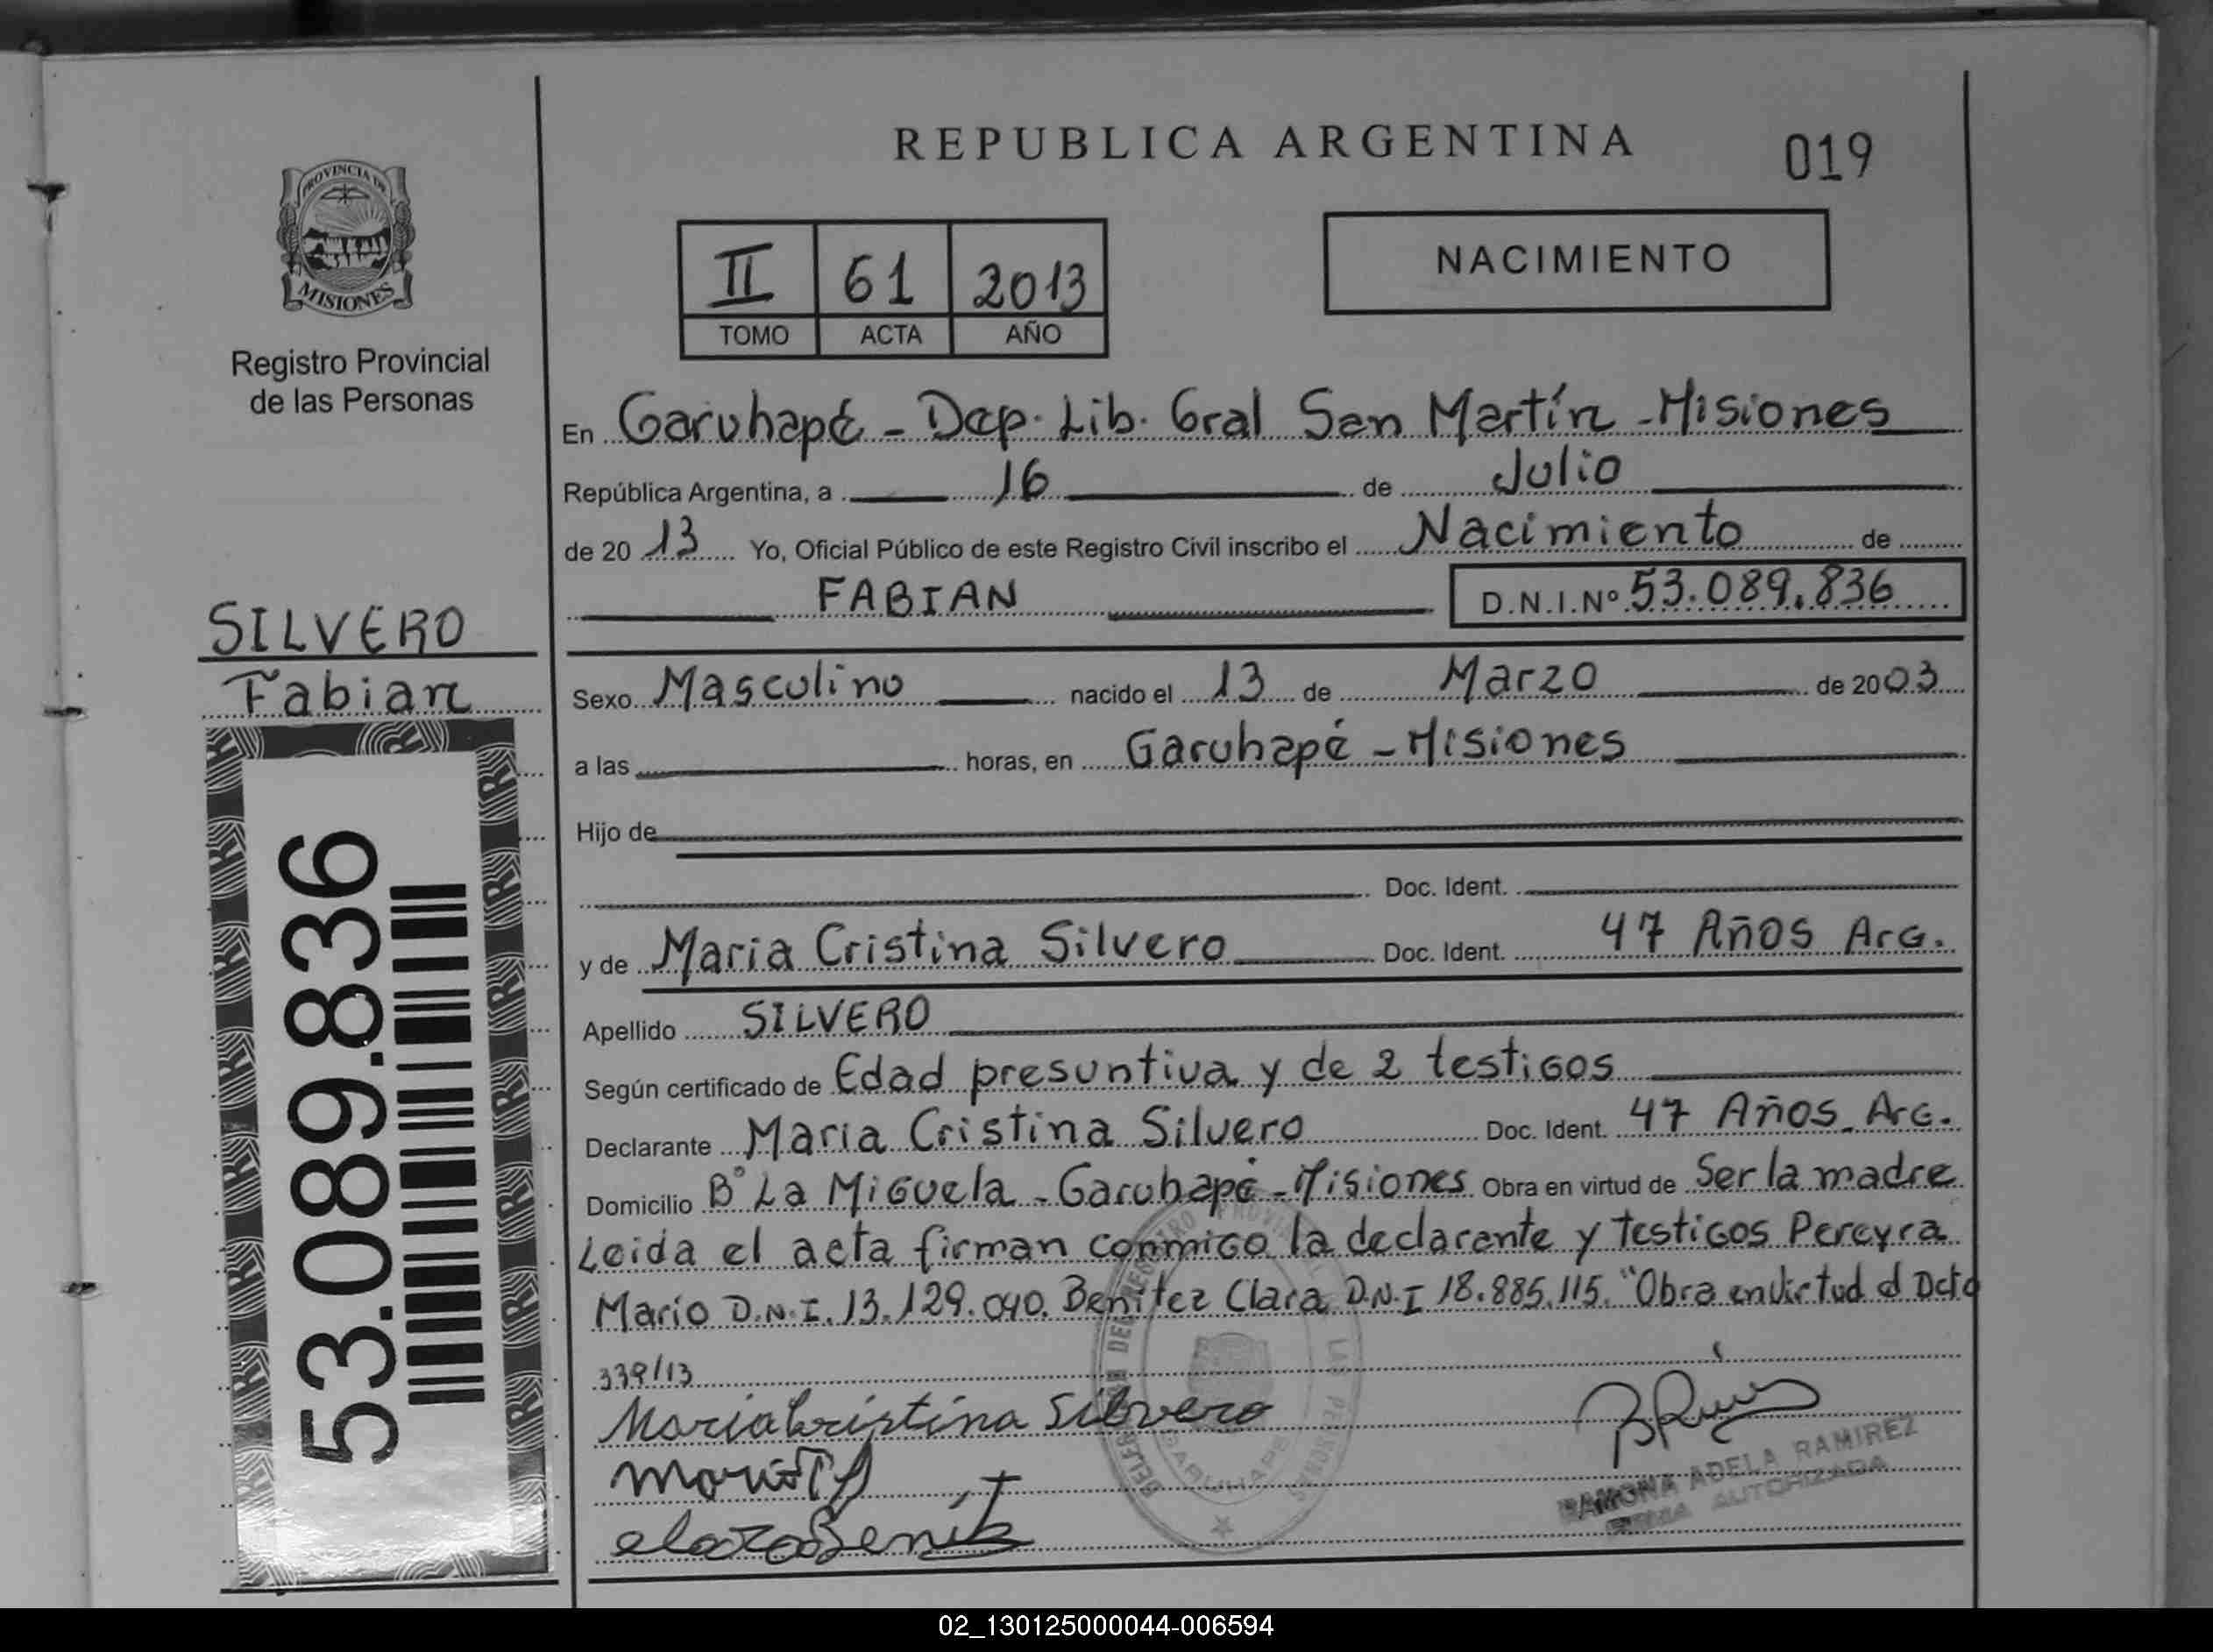 REPUBLICA ARGENTINA
019
PROVINCIA DE
MISIONES
Registro Provincial
de las Personas
II 61 2013
TOMO ACTA AÑO
NACIMIENTO
En Garuhapé - Dep. Lib. Gral San Martín - Misiones
República Argentina, a 16 de Julio
de 20 13 Yo, Oficial Público de este Registro Civil inscribo el Nacimiento de
FABIAN D.N.I.Nº 53.089.836
SILVERO
Fabian
53.089.836
Sexo Masculino nacido el 13 de Marzo de 2003
a las horas, en Garuhapé - Misiones
Hijo de
Doc. Ident.
y de Maria Cristina Silvero Doc. Ident. 47 Años Arg.
Apellido SILVERO
Según certificado de Edad presuntiva y de 2 testigos
Declarante Maria Cristina Silvero Doc. Ident. 47 Años Arg.
Domicilio B° La Miguela - Garuhapé - Misiones Obra en virtud de Ser la madre
Leida el acta firman conmigo la declarante y testigos Pereyra
Mario D.N.I. 13.129.040. Benitez Clara D.N.I 18.885.115. "Obra en virtud d Dcto
339/13
Maria Cristina Silvero
RAMONA ADELA RAMIREZ
FIRMA AUTORIZADA
GARUHAPE
02_130125000044-006594